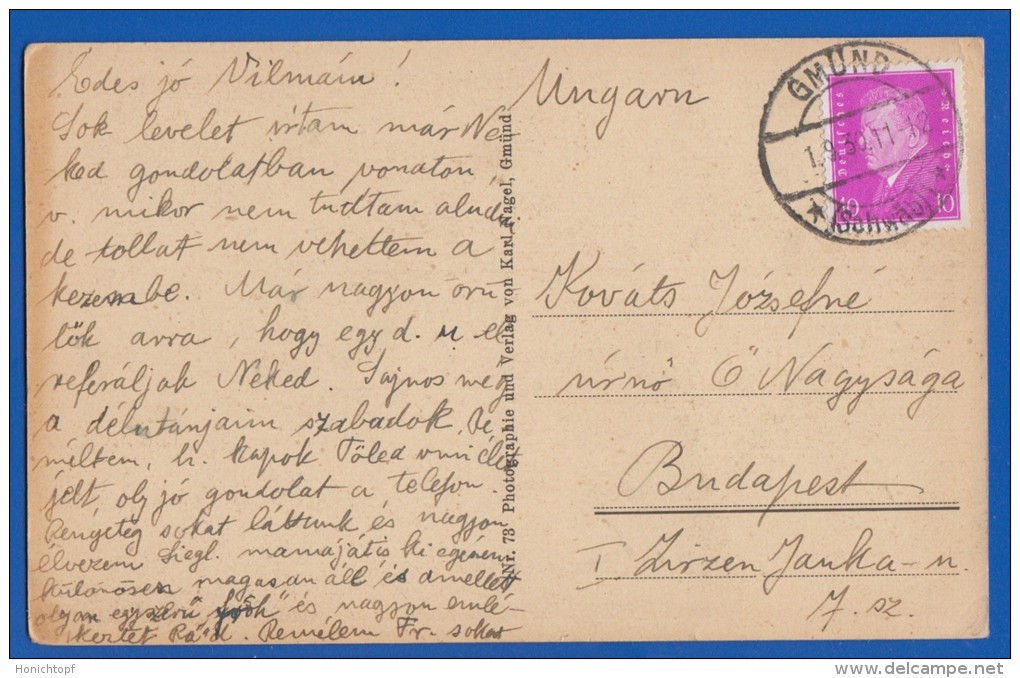 Édes jó Vilmám!
Sok levelet írtam már Ne
ked gondolatban vonaton
v. mikor nem tudtam aludni,
de tollat nem vehettem a
kezembe. Már nagyon örü
lök arra, hogy egy d. u. el
referáljak Neked. Sajnos még
a délutánjaim szabadok. Re
méltem, h. kapok Tőled vmi élet
jelt, oly jó gondolat a telefon.
Rengeteg sokat láttunk és nagyon
élvezem Siegl. mamáját is ki egészen
különösen magasan áll és amellett
olyan egyszerű és nagyon emlé-
keztet Rád. Remélem Fr. sokat
Nr. 73 Photographie und Verlag von Karl Nagel, Gmünd
Ungarn
GMÜND
1.9.30.11-12
(Schwäb)
Deutsches Reich
10 10
Kováts Józsefné
úrnő Ő Nagysága
Budapest
I Zirzen Janka-u.
7. sz.
Honichtopf
http://www.delcampe.net